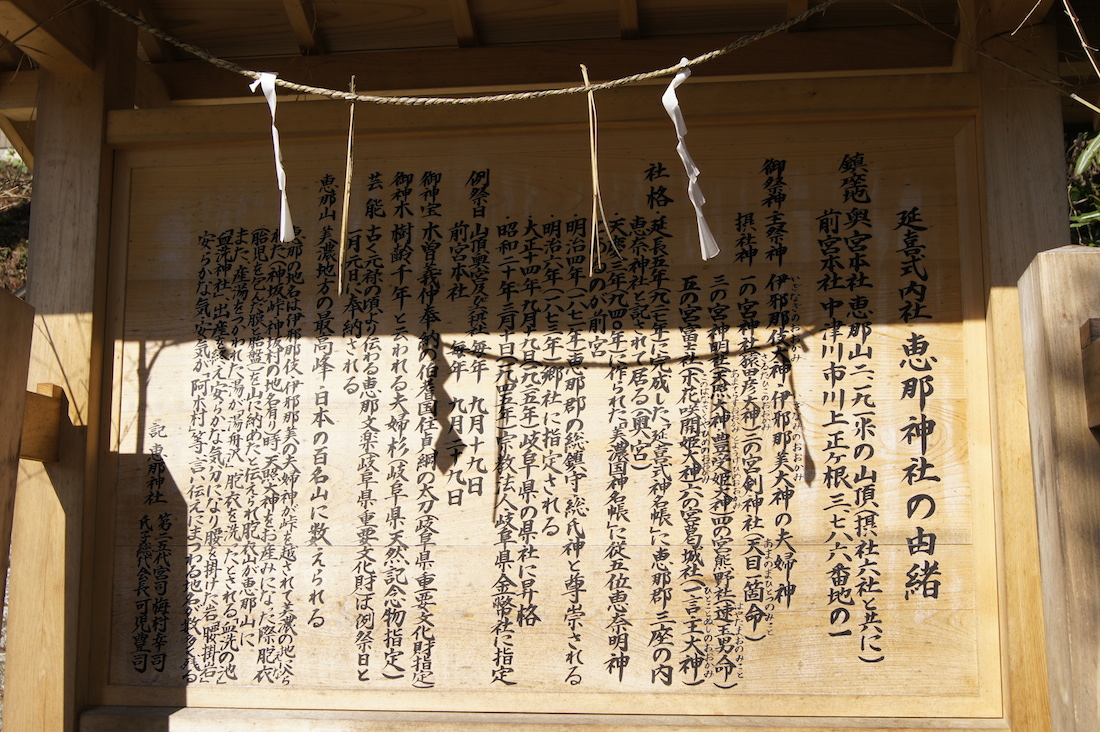 延喜式内社 恵那神社の由緒
鎮座地 奥宮本社 恵那山二一九一米の山頂(摂社六社と共に)
前宮本社 中津川市川上正ヶ根三七八六番地の一
御祭神 主祭神 伊邪那岐大神・伊邪那美大神の夫婦神
摂社神 一の宮神社(猿田彦大神)二の宮剣神社(天目一箇命)
三の宮神明社(天照大神・豊受姫大神)四の宮熊野社(速玉男命)
五の宮富士社(木花咲開姫大神)六の宮葛城社(一言主大神)
社格 延長五年(九二七年)に完成した「延喜式神名帳」に恵那郡三座の内
恵奈神社と記されて居る(奥宮)
天慶三年(九四〇年)に作られた「美濃国神名帳」に従五位恵奈明神
のが前宮
明治四年(一八七一年)恵那郡の総鎮守・総氏神と尊崇される
明治六年(一八七三年)郷社に指定される
大正十四年九月九日(一九二五年)岐阜県の県社に昇格
昭和二十年三月一日(一九四五年)宗教法人・岐阜県金幣社に指定
例祭日 山頂奥宮及び摂社 毎年 九月十九日
前宮本社 毎年 九月二十九日
御神宝 木曽義仲奉納の伯耆国住貞綱の太刀(岐阜県重要文化財指定)
御神木 樹齢千年と云われる夫婦杉(岐阜県天然記念物指定)
芸能 古く元禄の頃より伝わる恵那文楽(岐阜県重要文化財)は例祭日と
一月元日に奉納される
恵那山 美濃地方の最高峰・日本の百名山に数えられる
恵那の地名は伊邪那岐、伊邪那美の夫婦神が峠を越されて美濃の地に入ら
れた「神坂峠」神坂村の地名有り時、天照大神をお産みになった際、胞衣
(胎児を包んだ膜と胎盤)を山に納めたと伝えられ胞衣山が恵那山に
また、産湯をつかわれた「湯が湯舟沢」胞衣を洗ったとされる「血洗の池」
「血洗神社」出産を終え安らかな気分になり腰を掛けた岩「腰掛岩」
安らかな気「安気」が阿木村」等、言い伝えにまつわる地名が数多く有る
記 恵那神社 第二五代宮司 梅村幸司
氏子総代会長 可児豊司